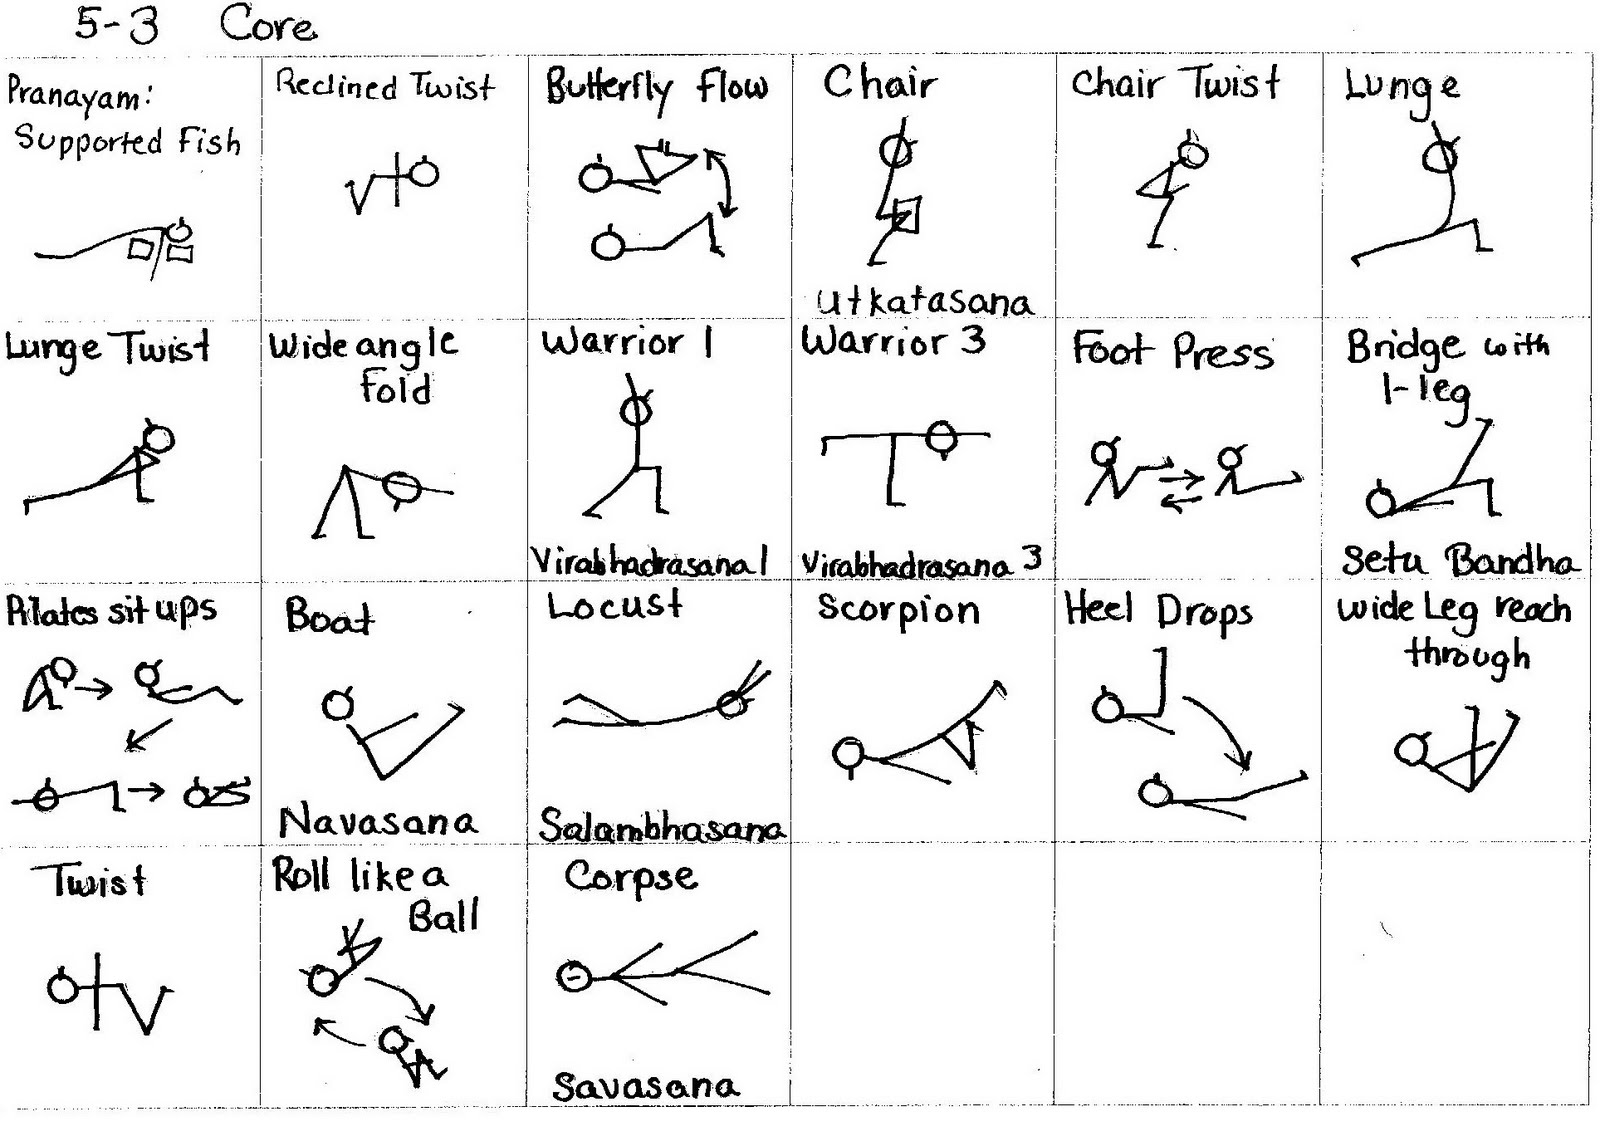 5-3 Core
Pranayam:
Supported Fish
Reclined Twist
Butterfly Flow
Chair
Utkatasana
Chair Twist
Lunge
Lunge Twist
Wide angle
Fold
Warrior 1
Virabhadrasana 1
Warrior 3
Virabhadrasana 3
Foot Press
Bridge with
1-leg
Setu Bandha
Pilates sit ups
Boat
Navasana
Locust
Salambhasana
Scorpion
Heel Drops
wide Leg reach
through
Twist
Roll like a
Ball
Corpse
Savasana